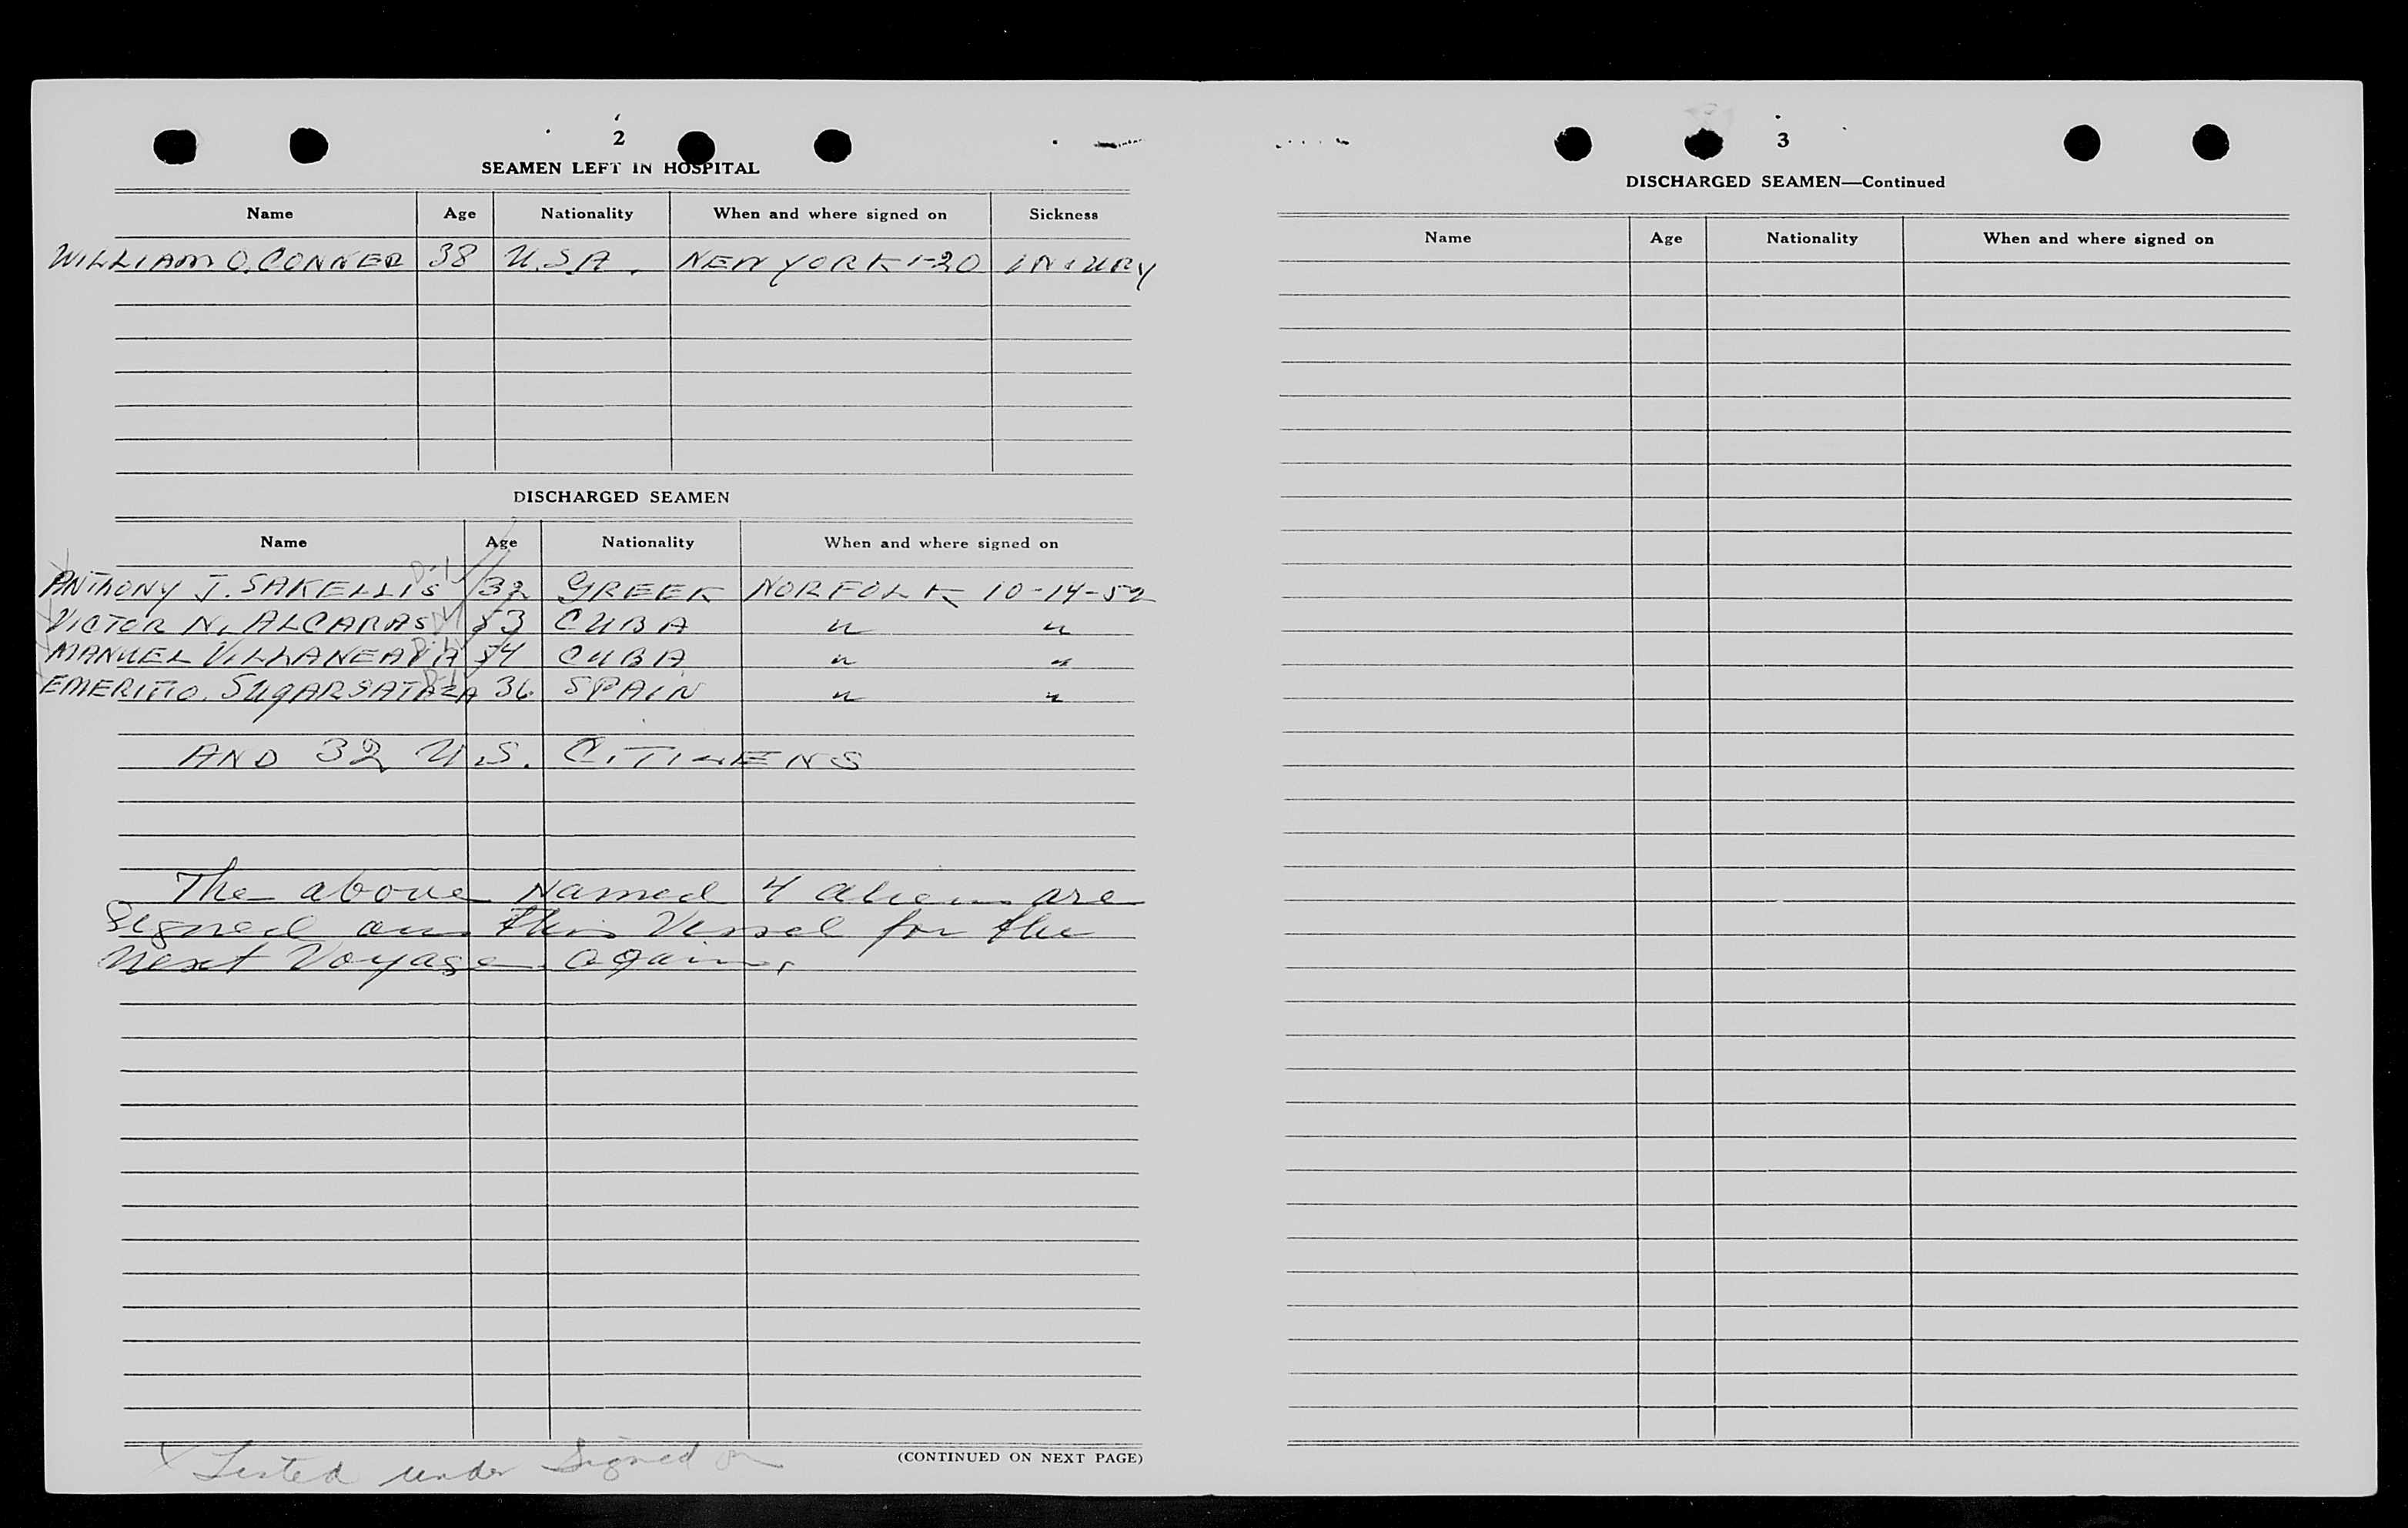 2
SEAMEN LEFT IN HOSPITAL
Name Age Nationality When and where signed on Sickness
WILLIAM O. CONNER 38 U.S.A. NEW YORK 1-20 INJURY
DISCHARGED SEAMEN
Name Age Nationality When and where signed on
ANTHONY J. SAKELLIS D-1 32 GREEK NORFOLK 10-14-52
VICTOR N. ALCARAS 53 CUBA " "
MANUEL VILLANEAVA D-1 54 CUBA " "
EMERITIO. SUGARSATAZA D-1 36 SPAIN " "
AND 32 U.S. CITIZENS
The above Named 4 aliens are
Signed on this Vessel for the
Next Voyage again.
x Listed under Signed on
(CONTINUED ON NEXT PAGE)
3
DISCHARGED SEAMEN—Continued
Name Age Nationality When and where signed on